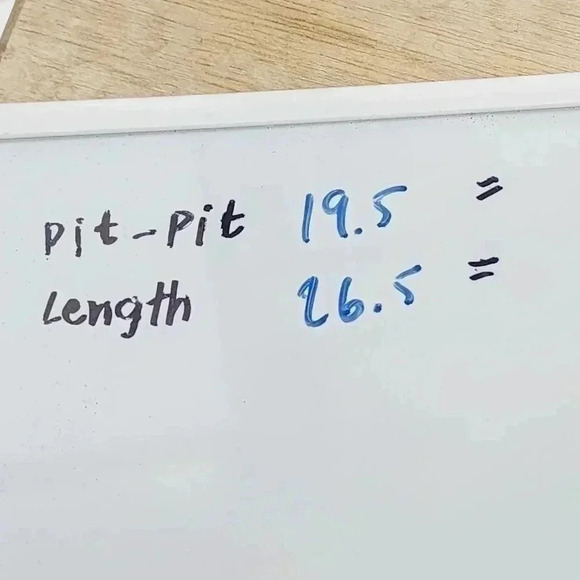 Pit-Pit 19.5 =
Length 26.5 =